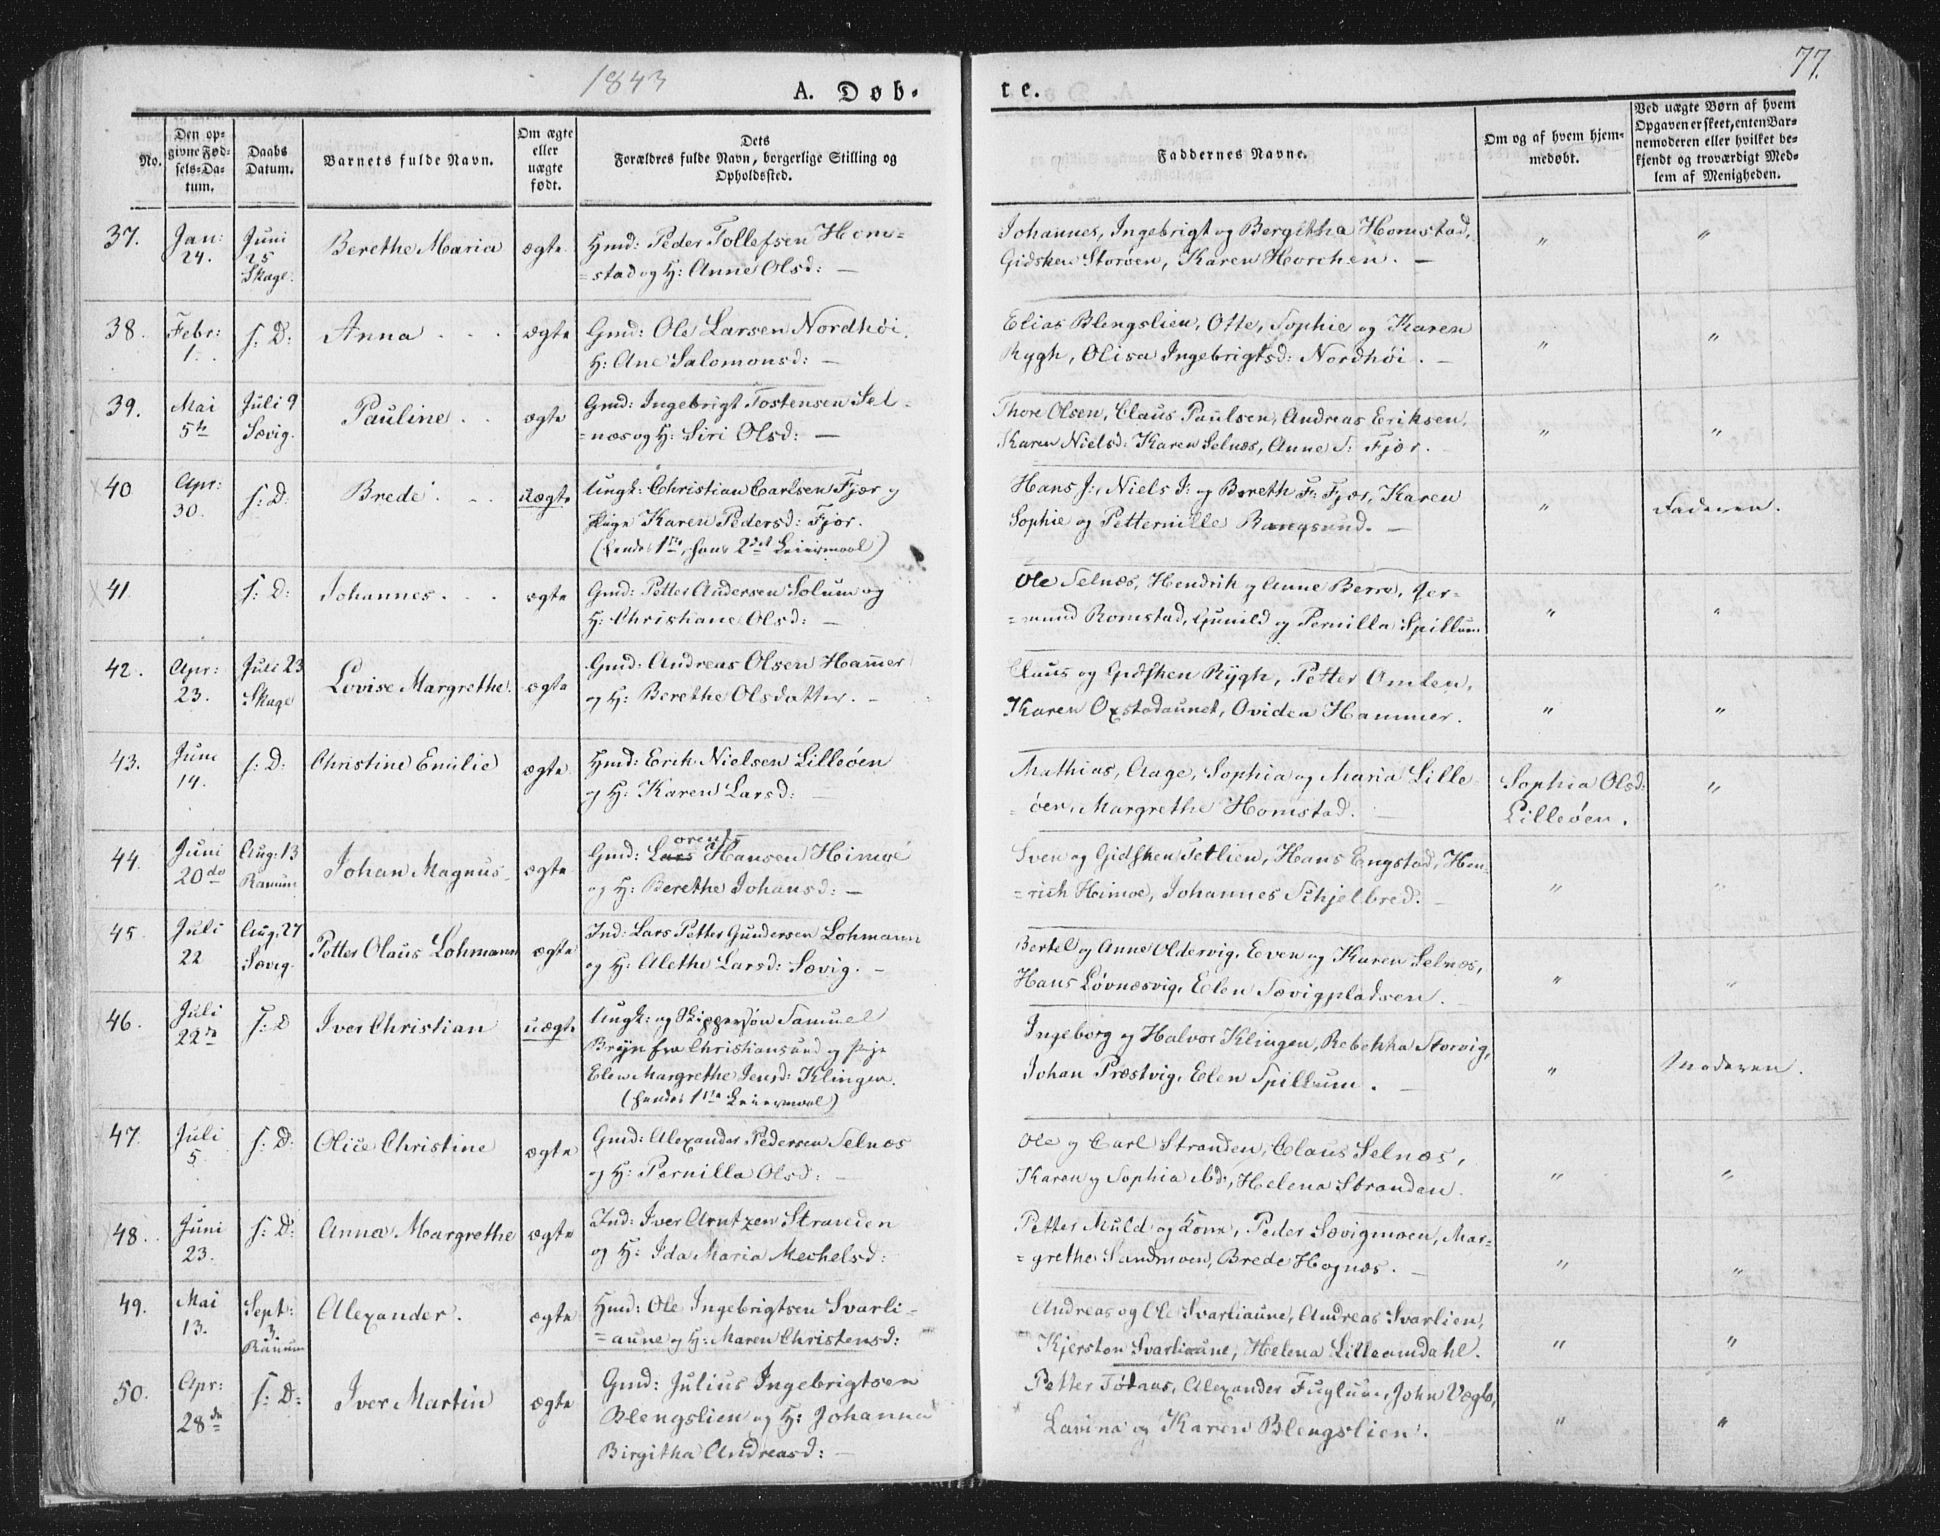 1843
A. Døb-
te.
77.
No.
Den op-
givne Fød-
sels-Da-
tum.
Daabs
Datum.
Barnets fulde Navn.
Om ægte
eller
uægte
født.
Dets
Forældres fulde Navn, borgerlige Stilling og
Opholdssted.
Faddernes Navne.
Om og af hvem hjem-
medøbt.
Ved uægte Børn af hvem
Opgaven er skeet, enten Bar-
nemoderen eller hvilket be-
kjendt og troværdigt Med-
lem af Menigheden.
37.
Jan:
24.
Juni
25
Skage.
Berethe Maria
ægte
Hmd: Peder Tollefsen Hom=
=stad og H: Anne Olsd: —
Johannes, Ingebrigt og Bergitha Homstad,
Gidsken Storøen, Karen Horchen. —
"
"
38.
Febr:
1.
s: D:
Anna
ægte
Gmd: Ole Larsen Nordhøi.
H: Ane Salomonsd: —
Elias Blengslien, Otte, Sophie og Karen
Rygh, Olisa Ingebrigtsd: Nordhøi. —
"
"
39.
Mai
5te
Juli 9
Sævig.
Pauline
ægte
Gmd: Ingebrigt Tostensen Sel=
=næs og H: Siri Olsd: —
Thore Olsen, Claus Paulsen, Andreas Eriksen,
Karen Nielsd: Karen Selnæs, Anne T: Fjær.
"
"
40
Apr:
30.
s: D:
Brede
uægte
Ungk: Christian Carlsen Fjær og
Pige Karen Pedersd: Fjær.
(hendes 1ste, hans 2det Leiermaal)
Hans J:, Niels J: og Bereth F: Fjær, Karen
Sophie og Petternille Bangsund. —
"
Faderen.
41.
s: D:
Johannes
ægte
Gmd: Petter Andersen Solum og
H: Christiane Olsd: —
Ole Selnæs, Hendrik og Anne Berre, Ger=
=mund Romstad, Gunild og Pernilla Spillum
"
"
42.
Apr:
23.
Juli 23
Skage
Lovise Margrethe.
ægte
Gmd: Andreas Olsen Hammer
og H: Berethe Olsdatter. —
Claus og Gidsken Rygh, Petter Amlen,
Karen Oxstadaunet, Ovidea Hammer.
"
"
43.
Juni
14.
s: D:
Christine Emilie
ægte
Hmd: Erik Nielsen Lilleøen
og H: Karen Larsd: —
Mathias, Aage, Sophia og Maria Lille=
=øen, Margrethe Homstad.
Sophia Olsd:
Lilleøen.
"
44.
Juni
20de
Aug: 13
Ranum
Johan Magnus
ægte
orents
Gmd: Lars Hansen Heimoe
og H: Berethe Johansd: —
Sven og Gidsken Setlien, Hans Engstad, Hen=
=rich Heimoe, Johannes Schjelbred.
"
"
45.
Juli
22
Aug: 27
Sævig.
Petter Olaus Lohmann
ægte
Ind: Lars Petter Gundersen Lohmann
og H: Alethe Larsd: Sævig. —
Bertel og Anne Oldervig, Even og Karen Selnæs,
Hans Løvnæsvig, Elen Sævigpladsen.
"
"
46.
Juli
22de
s: D
Iver Christian
uægte
Ungk: og Skippersøn Samuel
Bryn fra Christiansund og Pige
Elen Margrethe Jensd: Klingen.
(hendes 1ste Leiermaal)
Ingeborg og Halvor Klingen, Rebekka Storvig,
Johan Præstvig, Elen Spillum. —
"
Moderen.
47.
Juli
5.
s: D:
Olice Christine
ægte
Gmd: Alexander Pedersen Selnæs
og H: Pernilla Olsd: —
Ole og Carl Stranden, Claus Selnæs,
Karen og Sophia ibd:, Helena Stranden.
"
"
48.
Juni
23.
s: D:
Anna Margrethe
ægte
Ind: Iver Arntzen Stranden
og H: Ida Maria Mechelsd:
Petter Muld og Kone, Peder Sævigmoen, Mar=
=grethe Sandmoen, Brede Hognæs. —
"
"
49.
Mai
13.
Sept:
3.
Ranum
Alexander.
ægte
Hmd: Ole Ingebrigtsen Svarli=
=aune og H: Maren Christensd:
Andreas og Ole Svarliaune, Andreas Svarlien,
Kjersten Svarliaune, Helena Lilleamdahl.
"
"
50.
Apr:
28de
s: D:
Iver Martin
ægte
Gmd: Julius Ingebrigtsen
Blengslien og H: Johanna
Birgitha Andreasd: —
Petter Tøtaas, Alexander Fuglum, John Vegle,
Lavina og Karen Blengslien.
"
"